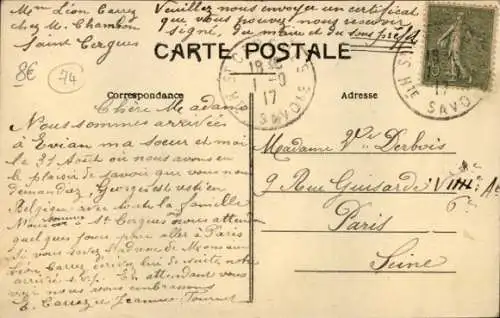 Mme Léon Carrez
chez M. Chambon
Saint Cergues
Veuillez nous envoyer un certificat
que vous pouvez nous recevoir
signé, du maire et du sous préfet
CARTE POSTALE
8€
74
18 35
1-9
17
SAVOIE
Hte SAVOIE
17
Correspondance
Adresse
Chère Madame
Nous sommes arrivées
à Evian ma soeur et moi
le 31 Août nous avons eu
le plaisir de savoir que vous nous
demandez, Georges est resté en
Belgique avec toute la famille
Nous sommes à St Cergues nous attendons
quelques jours pour aller à Paris
si vous savez l'adresse de Monsieur
Léon Carrez écrire lui de suite, notre
arrivée s.v.p. En attendant vous
voir nous vous embrassons
E. Carrez et Jeanne Tournet
Madame Vve Derbois
9 Rue
Paris
Seine